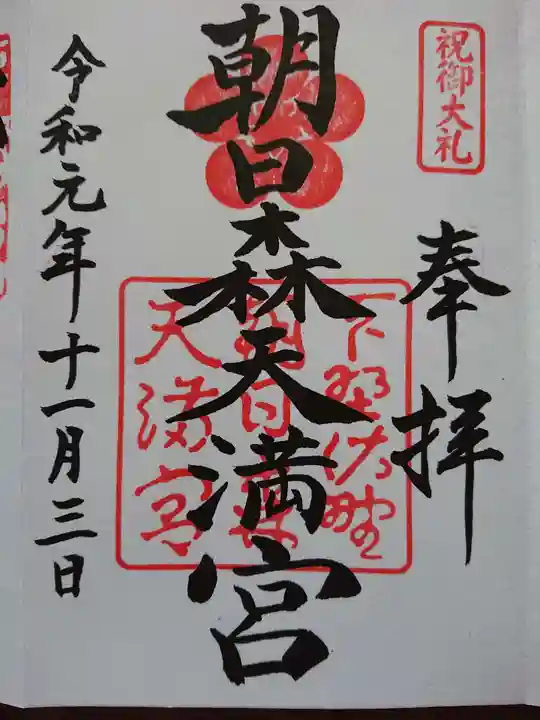 祝御大礼
奉拝
朝日森天満宮
下野佐野
朝日森
天満宮
令和元年十一月三日